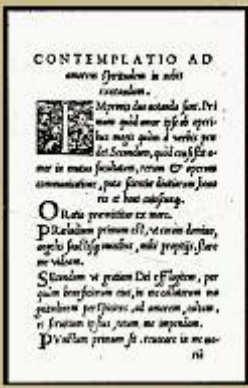 CONTEMPLATIO AD
amorem spiritualem in nobis
excitandum.
IMprimis duo notanda sunt. Pri
mum quid amor ipse ab operi
bus magis quàm à verbis pen
det. Secundum, quid
mer in mutua facultatum, rerum & operum
communicatione, puta scientiæ diuitiarum hono
ris et boni cuiuscunq.
ORatio præmittitur ex more.
PRæludium primum est, vt coram domino,
angelis sanctisq; omnibus, mihi propitijs, stare
me videam.
SEcundum vt gratiam Dei efflagitem, per
quam beneficiorum eius, in me collatorum ma
gnitudinem perspiciens, ad amorem, cultum,
et seruitium ipsius, totum me impendam.
PVnctum primum sit, reuocare in memo-
riā